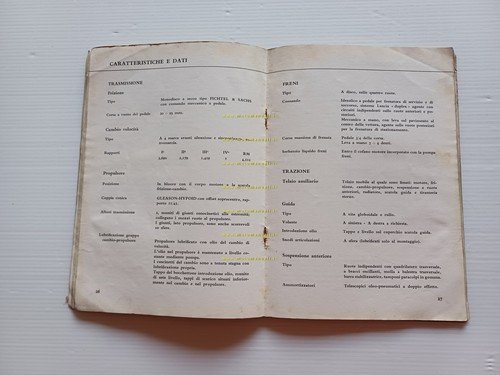 CARATTERISTICHE E DATI
TRASMISSIONE
Frizione
Tipo Monodisco a secco tipo FICHTEL & SACHS
con comando meccanico a pedale.
Corsa a vuoto del pedale 20 - 25 mm.
Cambio velocità
Tipo A 4 marce avanti silenziose e sincronizzate,
Rapporti Iª IIª IIIª IVª
Propulsore
Posizione In blocco con il corpo motore e la scatola
frizione-cambio.
Coppia conica GLEASON-HYPOID con offset soprasterzo, rap-
porto
Alberi trasmissione 2, muniti di giunti omocinetici alle estremità:
collegano i motori ruote al propulsore.
I giunti, lato propulsore, sono anche scorrevoli
Lubrificazione gruppo
cambio-propulsore Propulsore lubrificato con olio del cambio di
velocità.
L'olio nel propulsore è mantenuto a livello co-
stante mediante pompa.
I cuscinetti del cambio sono a tenuta stagna con
lubrificazione propria.
Tappo del bocchettone introduzione olio, munito
di asta livello, tappi di scarico situati inferior-
mente sul cambio e nel propulsore.
26
FRENI
Tipo A disco, sulle quattro ruote.
Comando Idraulico a pedale per frenatura di servizio e di
soccorso, sistema Lancia « duplex » agente con
circuiti indipendenti sulle ruote anteriori e po-
steriori.
Meccanico a mano, con leva sul pavimento al
centro della vettura, agente sulle ruote posteriori
per la frenatura di stazionamento.
Corsa massima di frenata Pedale 3/4 della corsa.
Leva a mano 3 - 4 denti.
Serbatoio liquido freni Entro il cofano motore incorporato con la pompa
freni.
TRAZIONE
Telaio ausiliario Telaio mobile al quale sono fissati: motore, fri-
zione, cambio-propulsore, sospensione e ruote
anteriori, radiatore, scatola guida e tiranteria
sterzo.
Guida
Tipo A vite globoidale e rullo.
Volante A sinistra - A destra a richiesta.
Introduzione olio Tappo a livello sul coperchio scatola guida.
Snodi articolazioni A sfera (lubrificati solo al montaggio).
Sospensione anteriore
Tipo Ruote indipendenti con quadrilatero trasversale,
a bracci oscillanti, molla a balestra trasversale,
barra stabilizzatrice, tamponi paracolpi in gomma.
Ammortizzatori Telescopici oleo-pneumatici a doppio effetto.
27